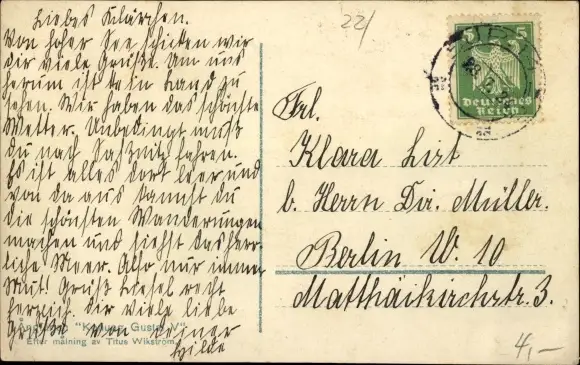 Liebes Klärchen.
Von hoher See schicken wir
dir viele Grüße. Um uns
herum ist kein Land zu
sehen. Wir haben das schönste
Wetter. Unbedingt mußt
du nach Saßnitz fahren.
Es ist alles dort leer und
von da aus kannst du
die schönsten Wanderungen
machen und siehst das herr-
liche Meer. Also nur immer
Mut! Grüß Liesel recht
herzlich. Dir viele liebe
Grüße von deiner
Hilde
"Konung Gustaf V"
Efter målning av Titus Wikström
22/
5 5
Deutsches
Reich
Frl.
Klara List
b. Herrn Dir. Müller.
Berlin W. 10
Matthäikirchstr. 3.
4,-